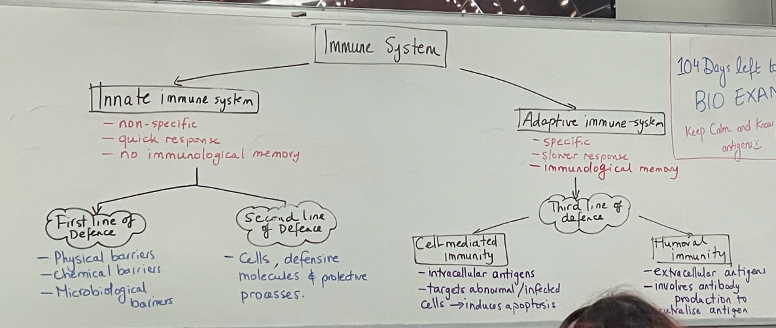 Immune System
104 Days left to
BIO EXAM
Keep Calm and Know
antigens
Innate immune system
- non-specific
- quick response
- no immunological memory
Adaptive immune system
- specific
- slower response
- immunological memory
First line of
Defence
- Physical barriers
- Chemical barriers
- Microbiological
barriers
Second line
of Defence
- Cells, defensive
molecules & protective
processes.
Third line of
defence
Cell-mediated
immunity
- intracellular antigens
- targets abnormal/infected
cells → induces apoptosis
Humoral
immunity
- extracellular antigens
- involves antibody
production to
antigen